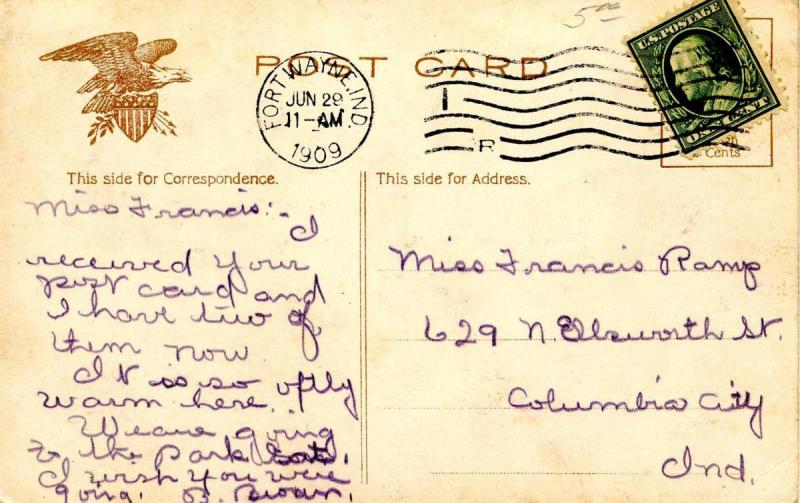 5.00
POST CARD
U.S. POSTAGE
ONE CENT
FORT WAYNE, IND.
JUN 29
11-AM
1909
I
R
Cents
This side for Correspondence.
This side for Address.
Miss Francis:- I
received your
post card and
I have two of
them now
It is so oftly
warm here..
We are going
to the Park
I wish you were
going. B.
Miss Francis Ramp
629 N. Ellsworth St.
Columbia City
Ind.